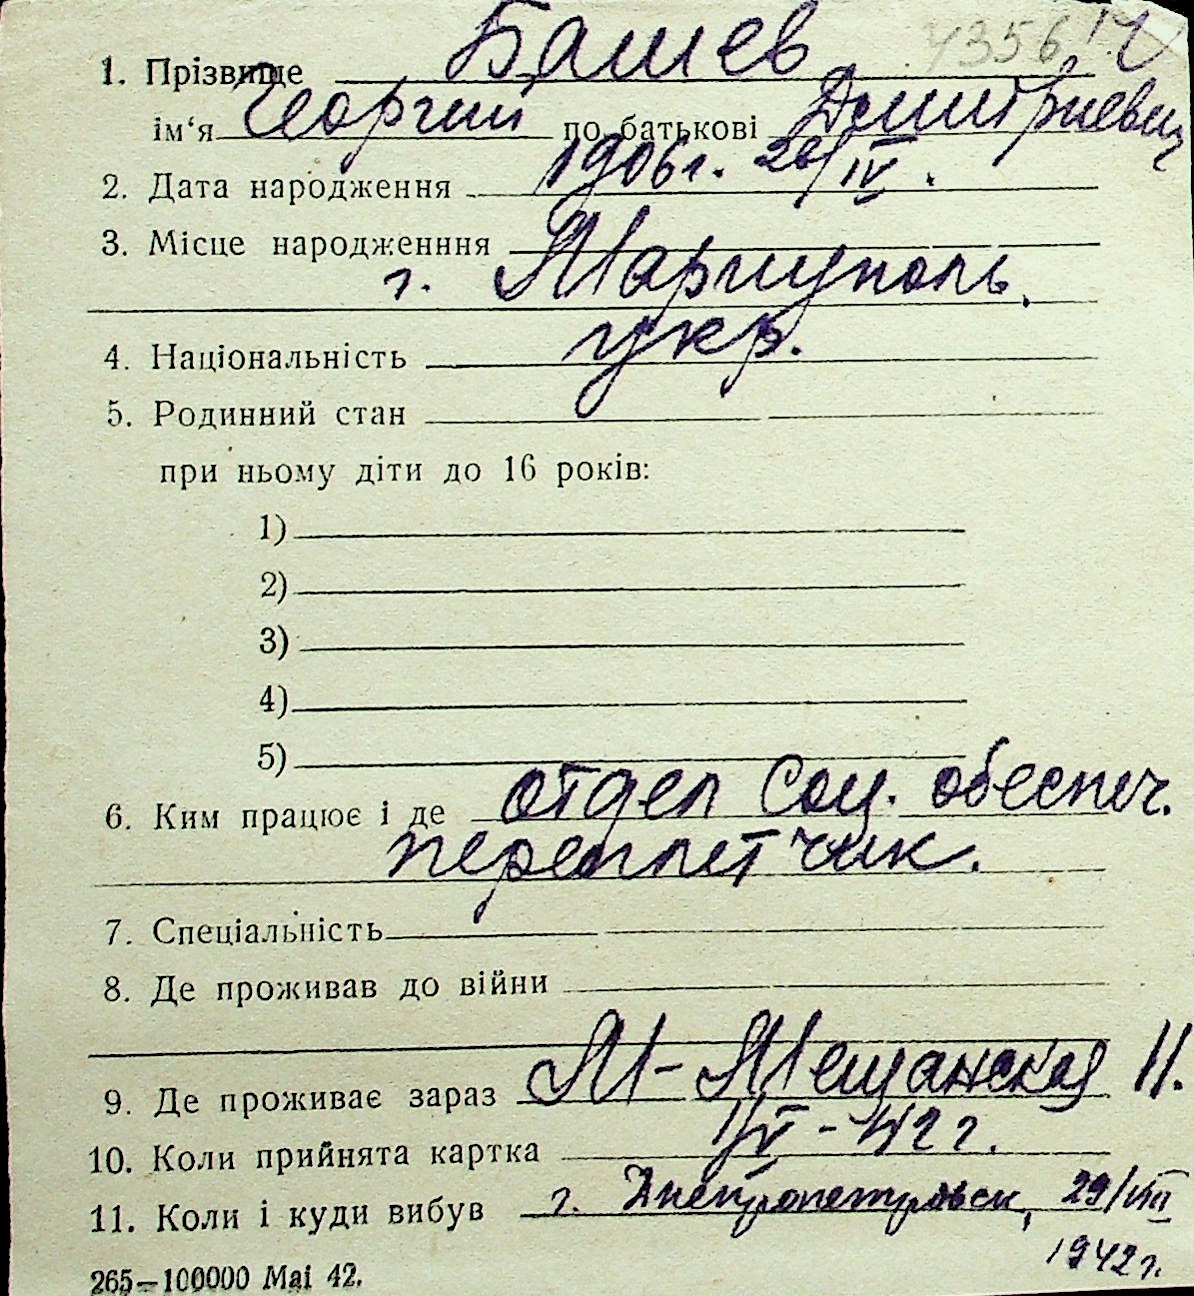 4356
1. Прізвище Башев
ім‘я Георгий по батькові Дмитриевич
2. Дата народження 1906 г. 26/IV.
3. Місце народженння
г. Мариуполь,
4. Національність укр.
5. Родинний стан
при ньому діти до 16 років:
1)
2)
3)
4)
5)
6. Ким працює і де отдел Соц. обеспеч.
переплетчик.
7. Спеціальність
8. Де проживав до війни
9. Де проживає зараз М-Мещанская 11.
10. Коли прийнята картка 1/V-42 г.
11. Коли і куди вибув г. Днепропетровск, 29/VIII
1942 г.
265—100000 Mai 42.